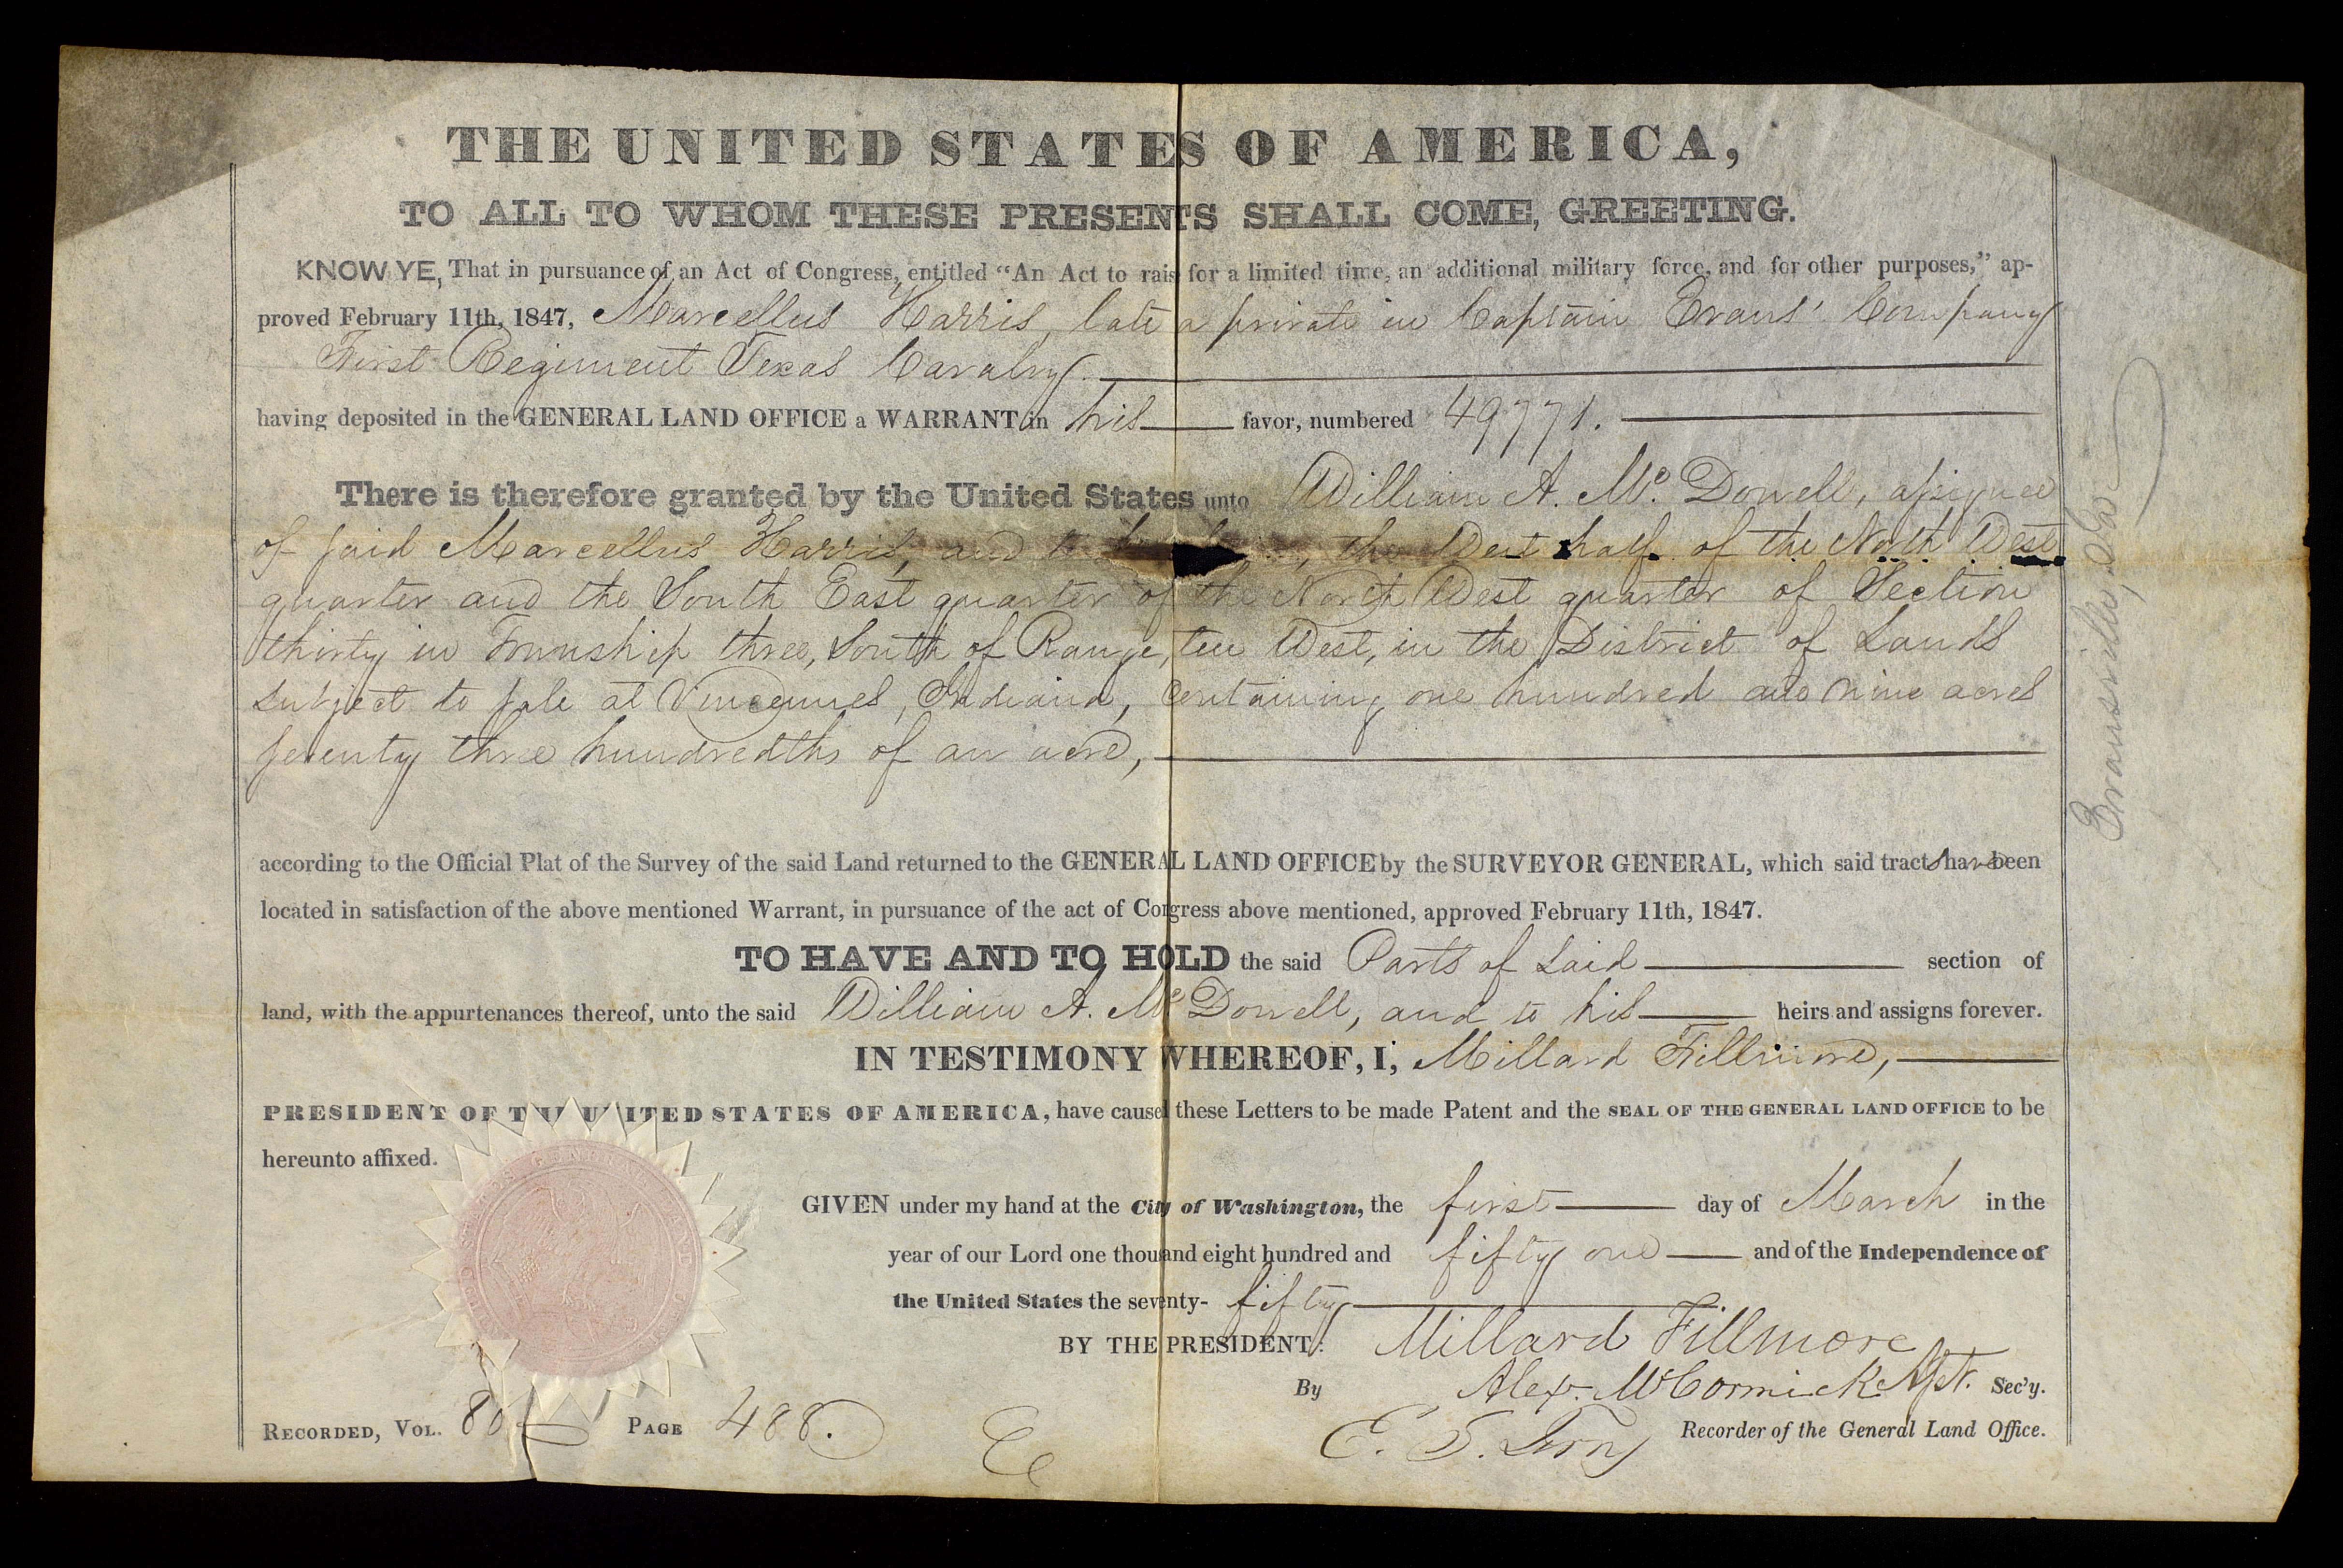 THE UNITED STATES OF AMERICA,
TO ALL TO WHOM THESE PRESENTS SHALL COME, GREETING.
KNOW YE, That in pursuance of an Act of Congress, entitled "An Act to rais for a limited time, an additional military force, and for other purposes," ap-
proved February 11th, 1847, Marcellus Harris, late a private in Captain Evans' Company
First Regiment Texas Cavalry.
having deposited in the GENERAL LAND OFFICE a WARRANT in his favor, numbered 49771.
There is therefore granted by the United States unto William A. Mc. Dowell, assignee
of said Marcellus Harris, and to the West half of the North West
quarter and the South East quarter of the North West quarter of Section
thirty in Township three, South of Range, ten West, in the District of Lands
subject to sale at Vincennes, Indiana, Containing one hundred and nine acres
seventy three hundredths of an acre,
according to the Official Plat of the Survey of the said Land returned to the GENERAL LAND OFFICE by the SURVEYOR GENERAL, which said tracts have been
located in satisfaction of the above mentioned Warrant, in pursuance of the act of Congress above mentioned, approved February 11th, 1847.
TO HAVE AND TO HOLD the said Parts of Said section of
land, with the appurtenances thereof, unto the said William A. Mc Dowell, and to his heirs and assigns forever.
IN TESTIMONY WHEREOF, I, Millard Fillmore,
PRESIDENT OF THE UNITED STATES OF AMERICA, have caused these Letters to be made Patent and the SEAL OF THE GENERAL LAND OFFICE to be
hereunto affixed.
GIVEN under my hand at the City of Washington, the first day of March in the
year of our Lord one thousand eight hundred and fifty one and of the Independence of
the United States the seventy- fifth
BY THE PRESIDENT: Millard Fillmore
By Alex. McCormick Sec'y.
RECORDED, VOL. 80 PAGE 488. E. S. Terry Recorder of the General Land Office.
Evansville, Ia